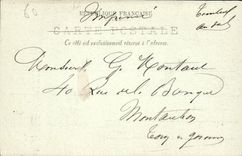 60
Imprimé
RÉPUBLIQUE FRANÇAISE
CARTE POSTALE
Ce côté est exclusivement réservé à l'adresse.
Monsieur G. Montaut
40 Rue de la Banque
Montauban
Tarn et Garonne